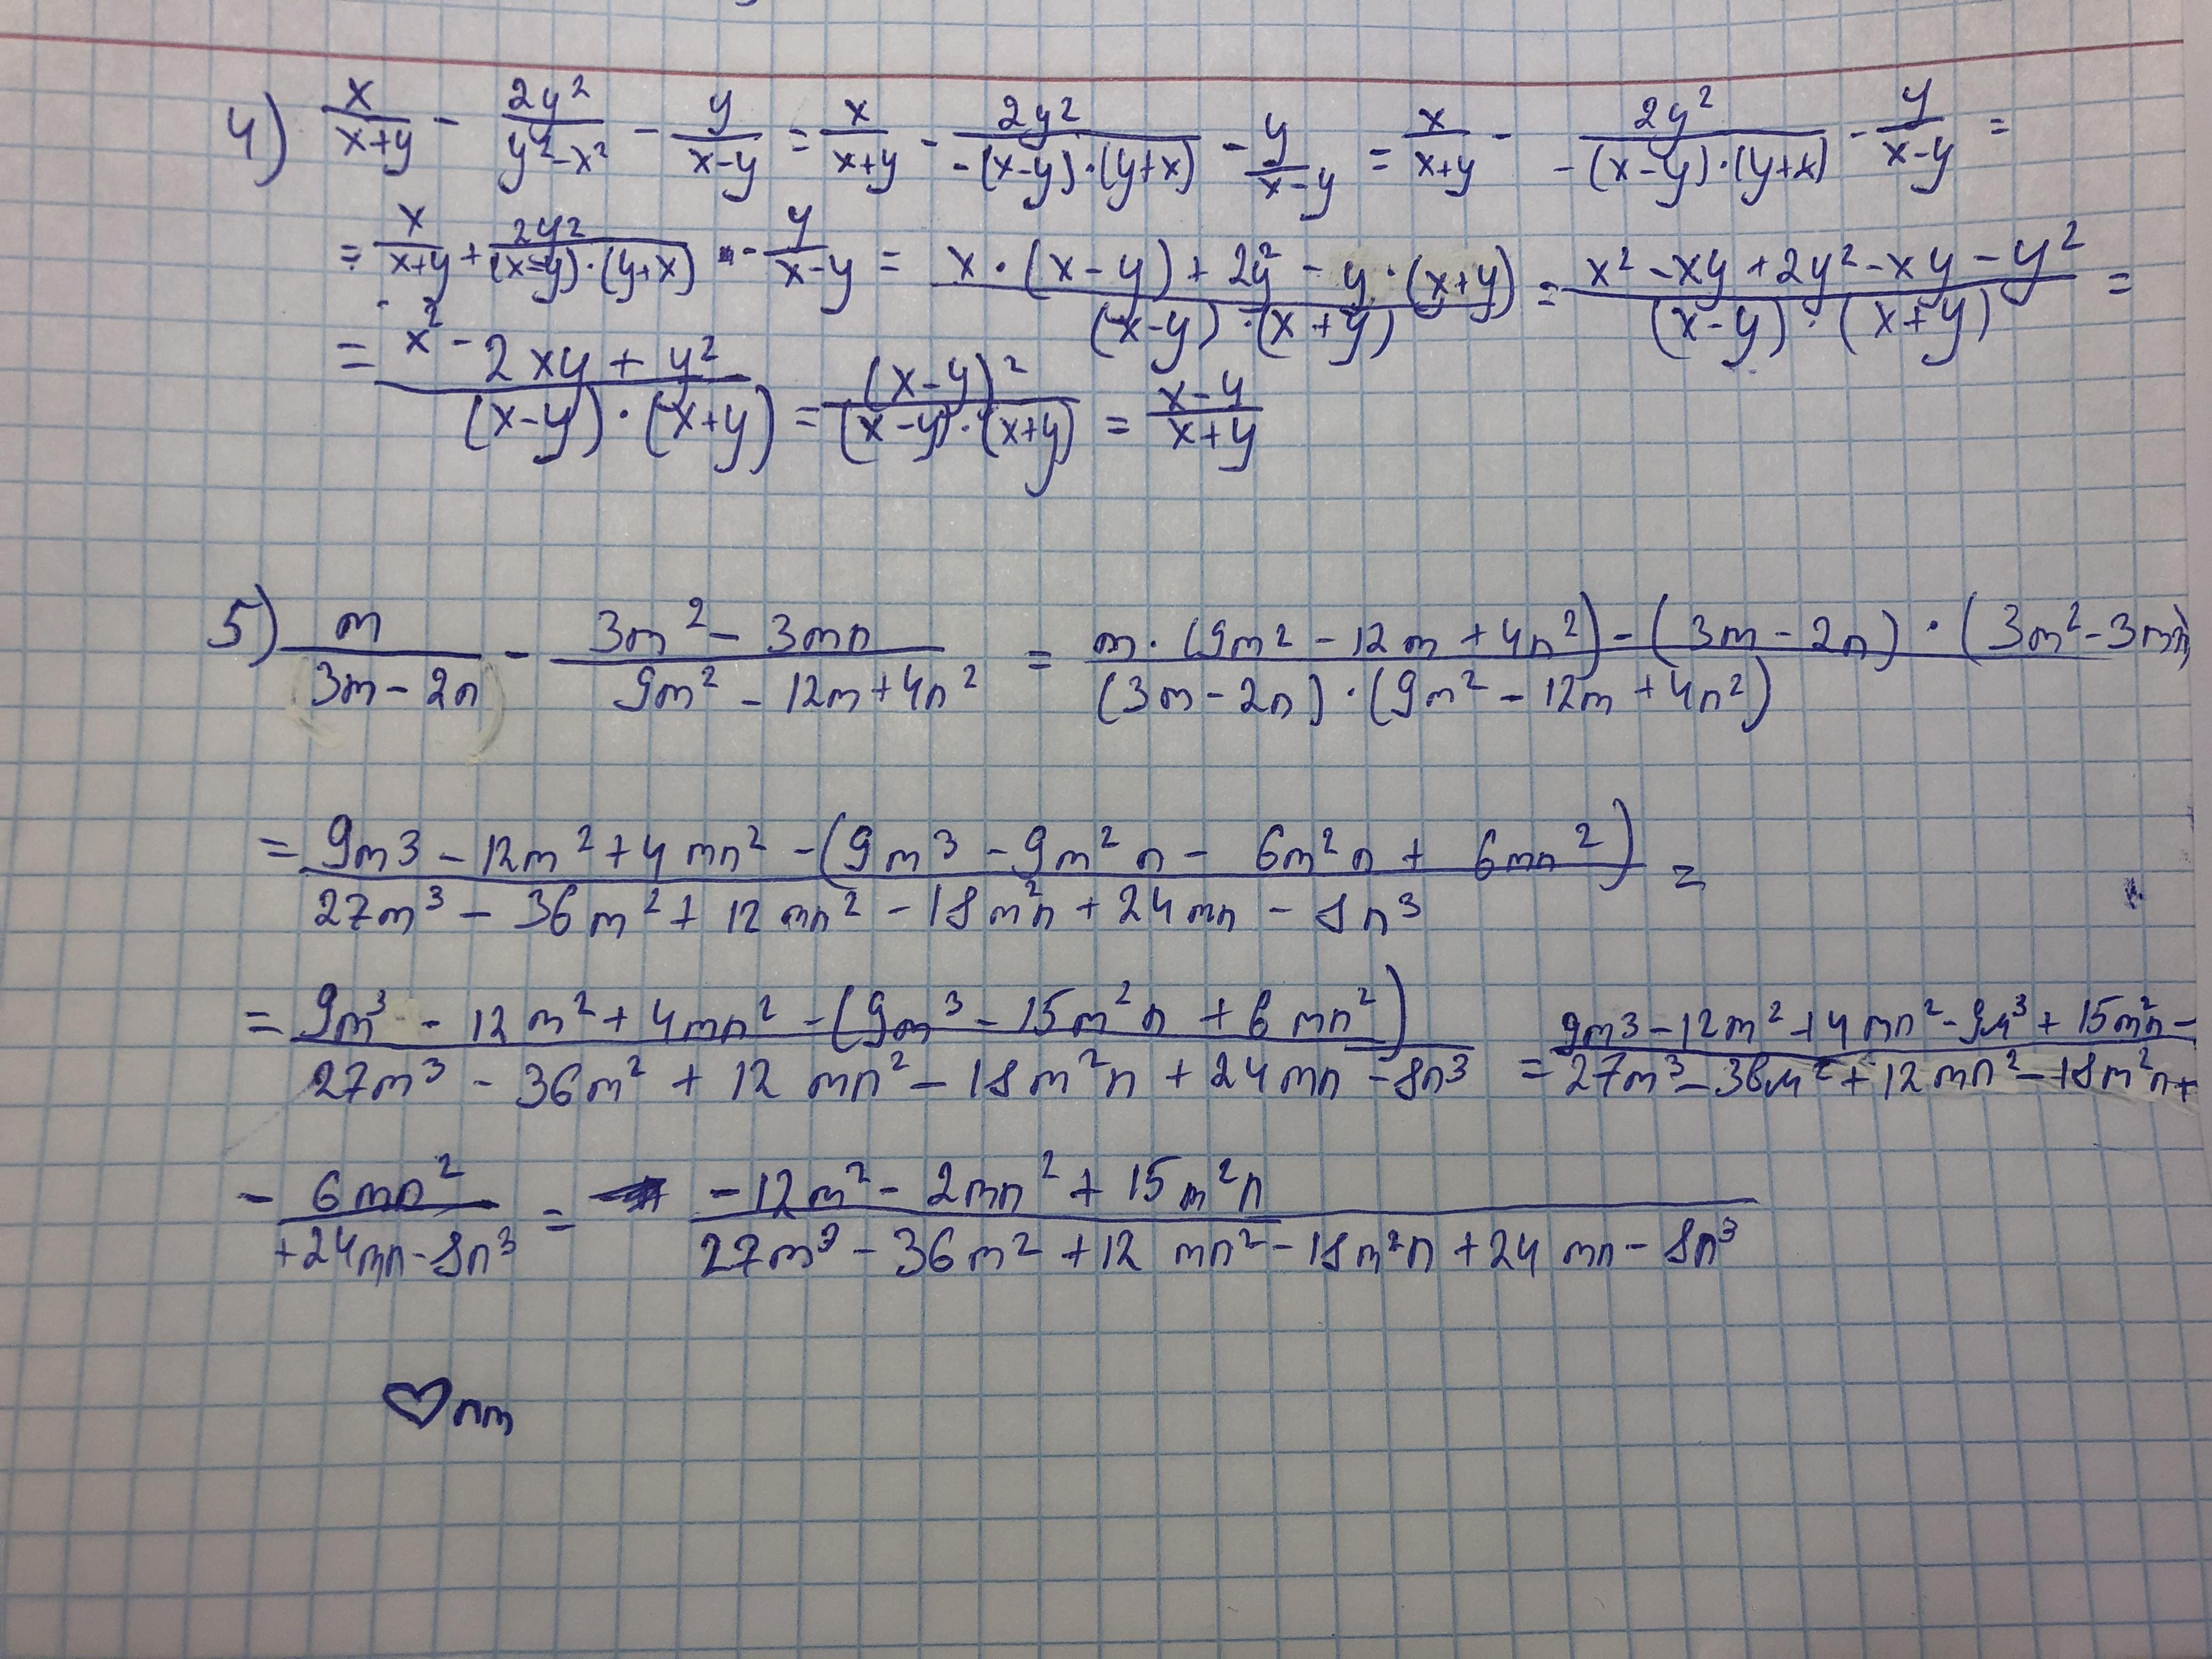 4) x/(x+y) - 2y²/(y²-x²) - y/(x-y) = x/(x+y) - 2y²/(-(x-y)·(y+x)) - y/(x-y) = x/(x+y) - 2y²/(-(x-y)·(y+x)) - y/(x-y) =
= x/(x+y) + 2y²/((x-y)·(y+x)) - y/(x-y) = (x·(x-y)+2y²-y·(x+y))/((x-y)·(x+y)) = (x²-xy+2y²-xy-y²)/((x-y)·(x+y)) =
= (x²-2xy+y²)/((x-y)·(x+y)) = (x-y)²/((x-y)·(x+y)) = (x-y)/(x+y)
5) m/(3m-2n) - (3m²-3mn)/(9m²-12m+4n²) = (m·(9m²-12m+4n²)-(3m-2n)·(3m²-3mn))/((3m-2n)·(9m²-12m+4n²))
= (9m³-12m²+4mn²-(9m³-9m²n-6m²n+6mn²))/(27m³-36m²+12mn²-18m²n+24mn-8n³) =
= (9m³-12m²+4mn²-(9m³-15m²n+6mn²))/(27m³-36m²+12mn²-18m²n+24mn-8n³) = (9m³-12m²+4mn²-9m³+15m²n-)/(27m³-36m²+12mn²-18m²n+)
(-6mn²)/(+24mn-8n³) = (-12m²-2mn²+15m²n)/(27m³-36m²+12mn²-18m²n+24mn-8n³)
♡nm